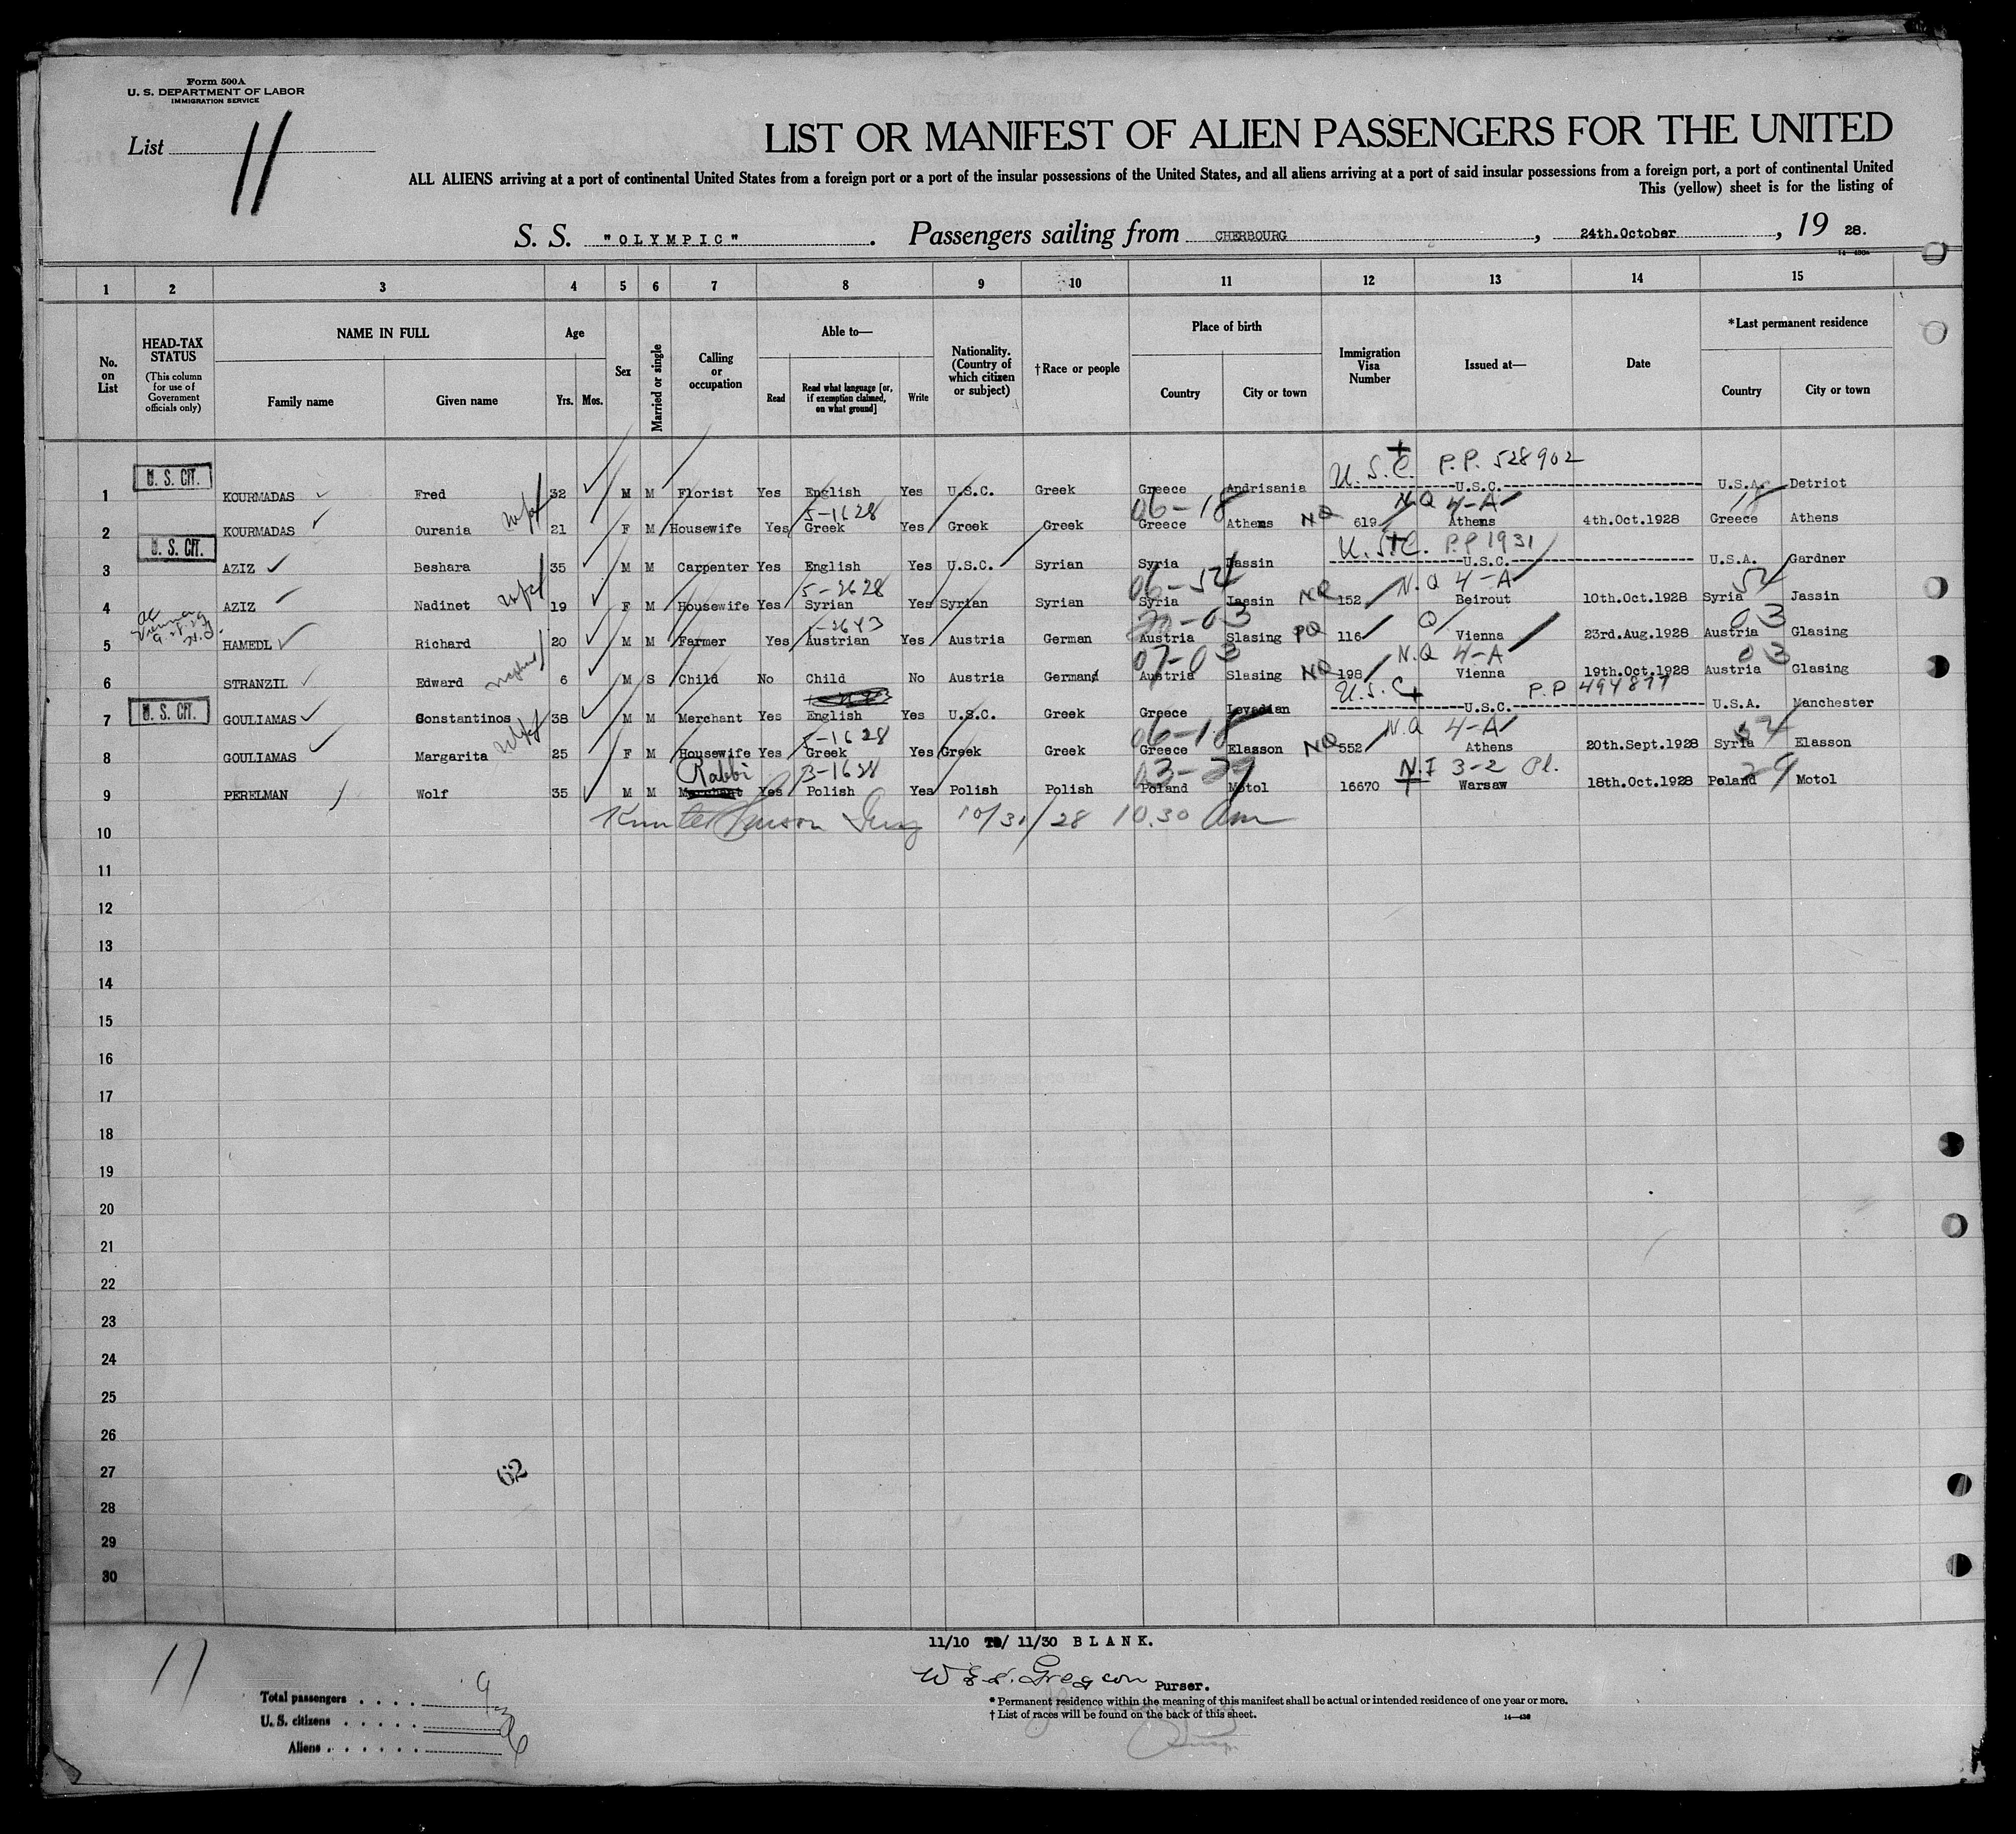 Form 500A
U. S. DEPARTMENT OF LABOR
IMMIGRATION SERVICE
List 11
LIST OR MANIFEST OF ALIEN PASSENGERS FOR THE UNITED
ALL ALIENS arriving at a port of continental United States from a foreign port or a port of the insular possessions of the United States, and all aliens arriving at a port of said insular possessions from a foreign port, a port of continental United
This (yellow) sheet is for the listing of
S. S. "OLYMPIC". Passengers sailing from CHERBOURG, 24th.October, 19 28.
1 2 3 4 5 6 7 8 9 10 11 12 13 14 15
No. on List
HEAD-TAX STATUS
(This column for use of Government officials only)
NAME IN FULL
Family name Given name
Age
Yrs. Mos.
Sex
Married or single
Calling or occupation
Able to—
Read Read what language [or, if exemption claimed, on what ground] Write
Nationality. (Country of which citizen or subject)
†Race or people
Place of birth
Country City or town
Immigration Visa Number
Issued at—
Date
*Last permanent residence
Country City or town
U. S. CIT. U.S.C. P.P. 528902
1 KOURMADAS Fred 32 M M Florist Yes English Yes U.S.C. Greek Greece Andrisania U.S.C. U.S.A. Detriot
5-1628 06-18 N.Q 4-A 18
2 KOURMADAS Ourania wife 21 F M Housewife Yes Greek Yes Greek Greek Greece Athens NQ 619 Athens 4th.Oct.1928 Greece Athens
U. S. CIT. U.S.C. P.P 1931
3 AZIZ Beshara 35 M M Carpenter Yes English Yes U.S.C. Syrian Syria Jassin U.S.C. U.S.A. Gardner
5-2628 06-54 N.Q 4-A 54
4 AZIZ Nadinet wife 19 F M Housewife Yes Syrian Yes Syrian Syrian Syria Jassin NQ 152 Beirout 10th.Oct.1928 Syria Jassin
Vienna -03 Q 03
5 HAMEDL Richard 20 M M Farmer Yes Austrian Yes Austria German Austria Slasing PQ 116 Vienna 23rd.Aug.1928 Austria Glasing
07-03 N.Q 4-A 03
6 STRANZIL Edward nephew 6 M S Child No Child No Austria German Austria Slasing NQ 198 Vienna 19th.Oct.1928 Austria Glasing
U. S. CIT. U.S.C P.P 494877
7 GOULIAMAS Constantinos 38 M M Merchant Yes English Yes U.S.C. Greek Greece Levadian U.S.C. U.S.A. Manchester
-1628 06-18 N.Q 4-A 54
8 GOULIAMAS Margarita wife 25 F M Housewife Yes Greek Yes Greek Greek Greece Elasson NQ 552 Athens 20th.Sept.1928 Syria Elasson
Rabbi 3-1628 03-29 N.I 3-2 Pl. 29
9 PERELMAN Wolf 35 M M Merchant Yes Polish Yes Polish Polish Poland Motol 16670 Warsaw 18th.Oct.1928 Poland Motol
10 10/31/28 10.30 am
11
12
13
14
15
16
17
18
19
20
21
22
23
24
25
26
27
62
28
29
30
11/10 TO/ 11/30 BLANK.
Purser.
11
Total passengers 9
U. S. citizens 3
Aliens 6
* Permanent residence within the meaning of this manifest shall be actual or intended residence of one year or more.
† List of races will be found on the back of this sheet.